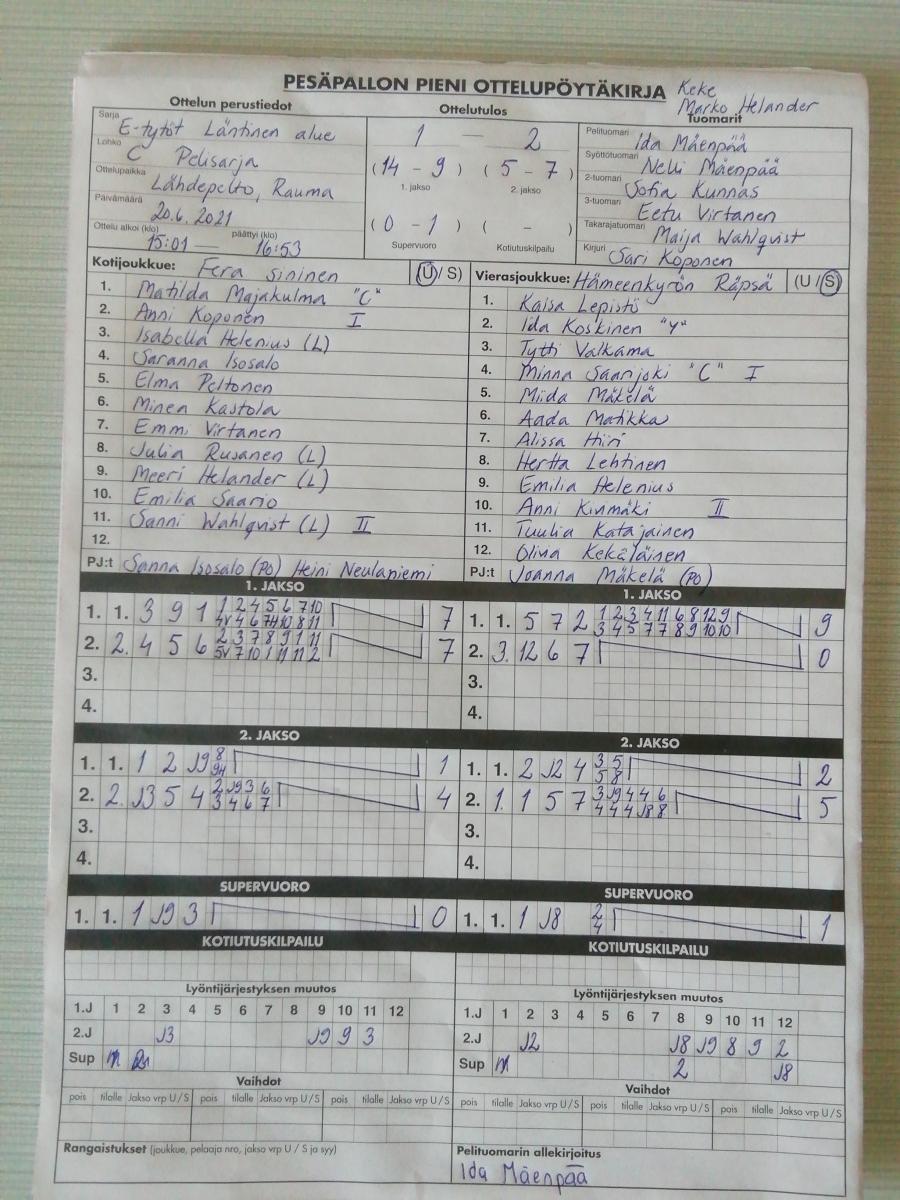 PESÄPALLON PIENI OTTELUPÖYTÄKIRJA
Keke
Marko Helander
Ottelun perustiedot
Ottelutulos
Tuomarit
Sarja E-tytöt Läntinen alue
Lohko C Pelisarja
Ottelupaikka Lähdepelto, Rauma
Päivämäärä 20.6.2021
Ottelu alkoi (klo) 15:01 — päättyi (klo) 16:53
1 — 2
(14 - 9) (5 - 7)
1. jakso 2. jakso
(0 - 1) ( - )
Supervuoro Kotiutuskilpailu
Pelituomari Ida Mäenpää
Syöttötuomari Nelli Mäenpää
2-tuomari Sofia Kunnas
3-tuomari Eetu Virtanen
Takarajatuomari Maija Wahlqvist
Kirjuri Sari Koponen
Kotijoukkue: Fera sininen (U/S)
1. Matilda Majakulma "C"
2. Anni Koponen I
3. Isabella Helenius (L)
4. Saranna Isosalo
5. Elma Peltonen
6. Minea Kastola
7. Emmi Virtanen
8. Julia Rusanen (L)
9. Meeri Helander (L)
10. Emilia Saario
11. Sanni Wahlqvist (L) II
12.
PJ:t Sanna Isosalo (PO) Heini Neulaniemi
Vierasjoukkue: Hämeenkyrön Räpsä (U/S)
1. Kaisa Lepistö
2. Ida Koskinen "Y"
3. Tytti Valkama
4. Minna Saarijoki "C" I
5. Miida Mäkelä
6. Aada Matikka
7. Alissa Hiiri
8. Hertta Lehtinen
9. Emilia Helenius
10. Anni Kinmäki II
11. Tuulia Katajainen
12. Olivia Kekäläinen
PJ:t Joanna Mäkelä (PO)
1. JAKSO
1. 1. 3 9 1 1 2 4 5 6 7 10 7
4V 4 6 7H 10 8 11
2. 2. 4 5 6 2 3 7 8 9 1 11 7
5V 7 10 1 11 11 2
3.
4.
1. JAKSO
1. 1. 5 7 2 1 2 3 4 11 6 8 12 9 9
3 4 5 7 7 8 9 10 10
2. 3. 12 6 7 0
3.
4.
2. JAKSO
1. 1. 1 2 J9 8 1
9H
2. 2. J3 5 4 2 J9 3 6 4
3 4 6 7
3.
4.
2. JAKSO
1. 1. 2 J2 4 3 5 2
5 8
2. 1. 1 5 7 3 J9 4 4 6 5
4 4 4 J8 8
3.
4.
SUPERVUORO
1. 1. 1 J9 3 0
SUPERVUORO
1. 1. 1 J8 2 1
4
KOTIUTUSKILPAILU
KOTIUTUSKILPAILU
Lyöntijärjestyksen muutos
1.J 1 2 3 4 5 6 7 8 9 10 11 12
2.J J3 J9 9 3
Sup
Lyöntijärjestyksen muutos
1.J 1 2 3 4 5 6 7 8 9 10 11 12
2.J J2 J8 J9 8 9 2
Sup 2 J8
Vaihdot
pois tilalle Jakso vrp U/S pois tilalle Jakso vrp U/S pois tilalle Jakso vrp U/S
Vaihdot
pois tilalle Jakso vrp U/S pois tilalle Jakso vrp U/S pois tilalle Jakso vrp U/S
Rangaistukset (joukkue, pelaaja nro, jakso vrp U / S ja syy)
Pelituomarin allekirjoitus
Ida Mäenpää